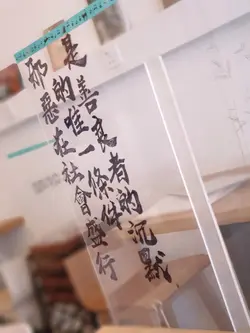 邪惡在社會盛行
的唯一條件
是善良者的沉默